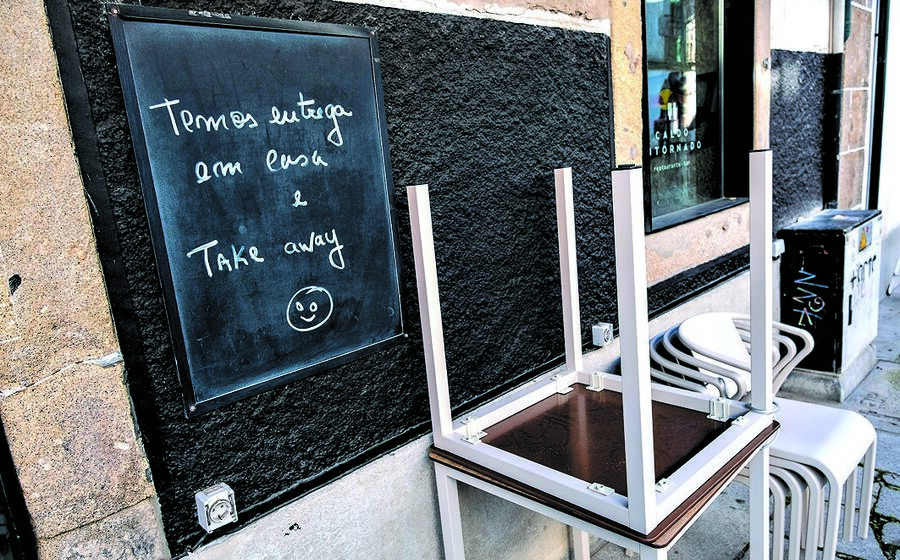 Temos entrega
em casa
e
TAKE away
CALDO
ENTORNADO
restaurante bar